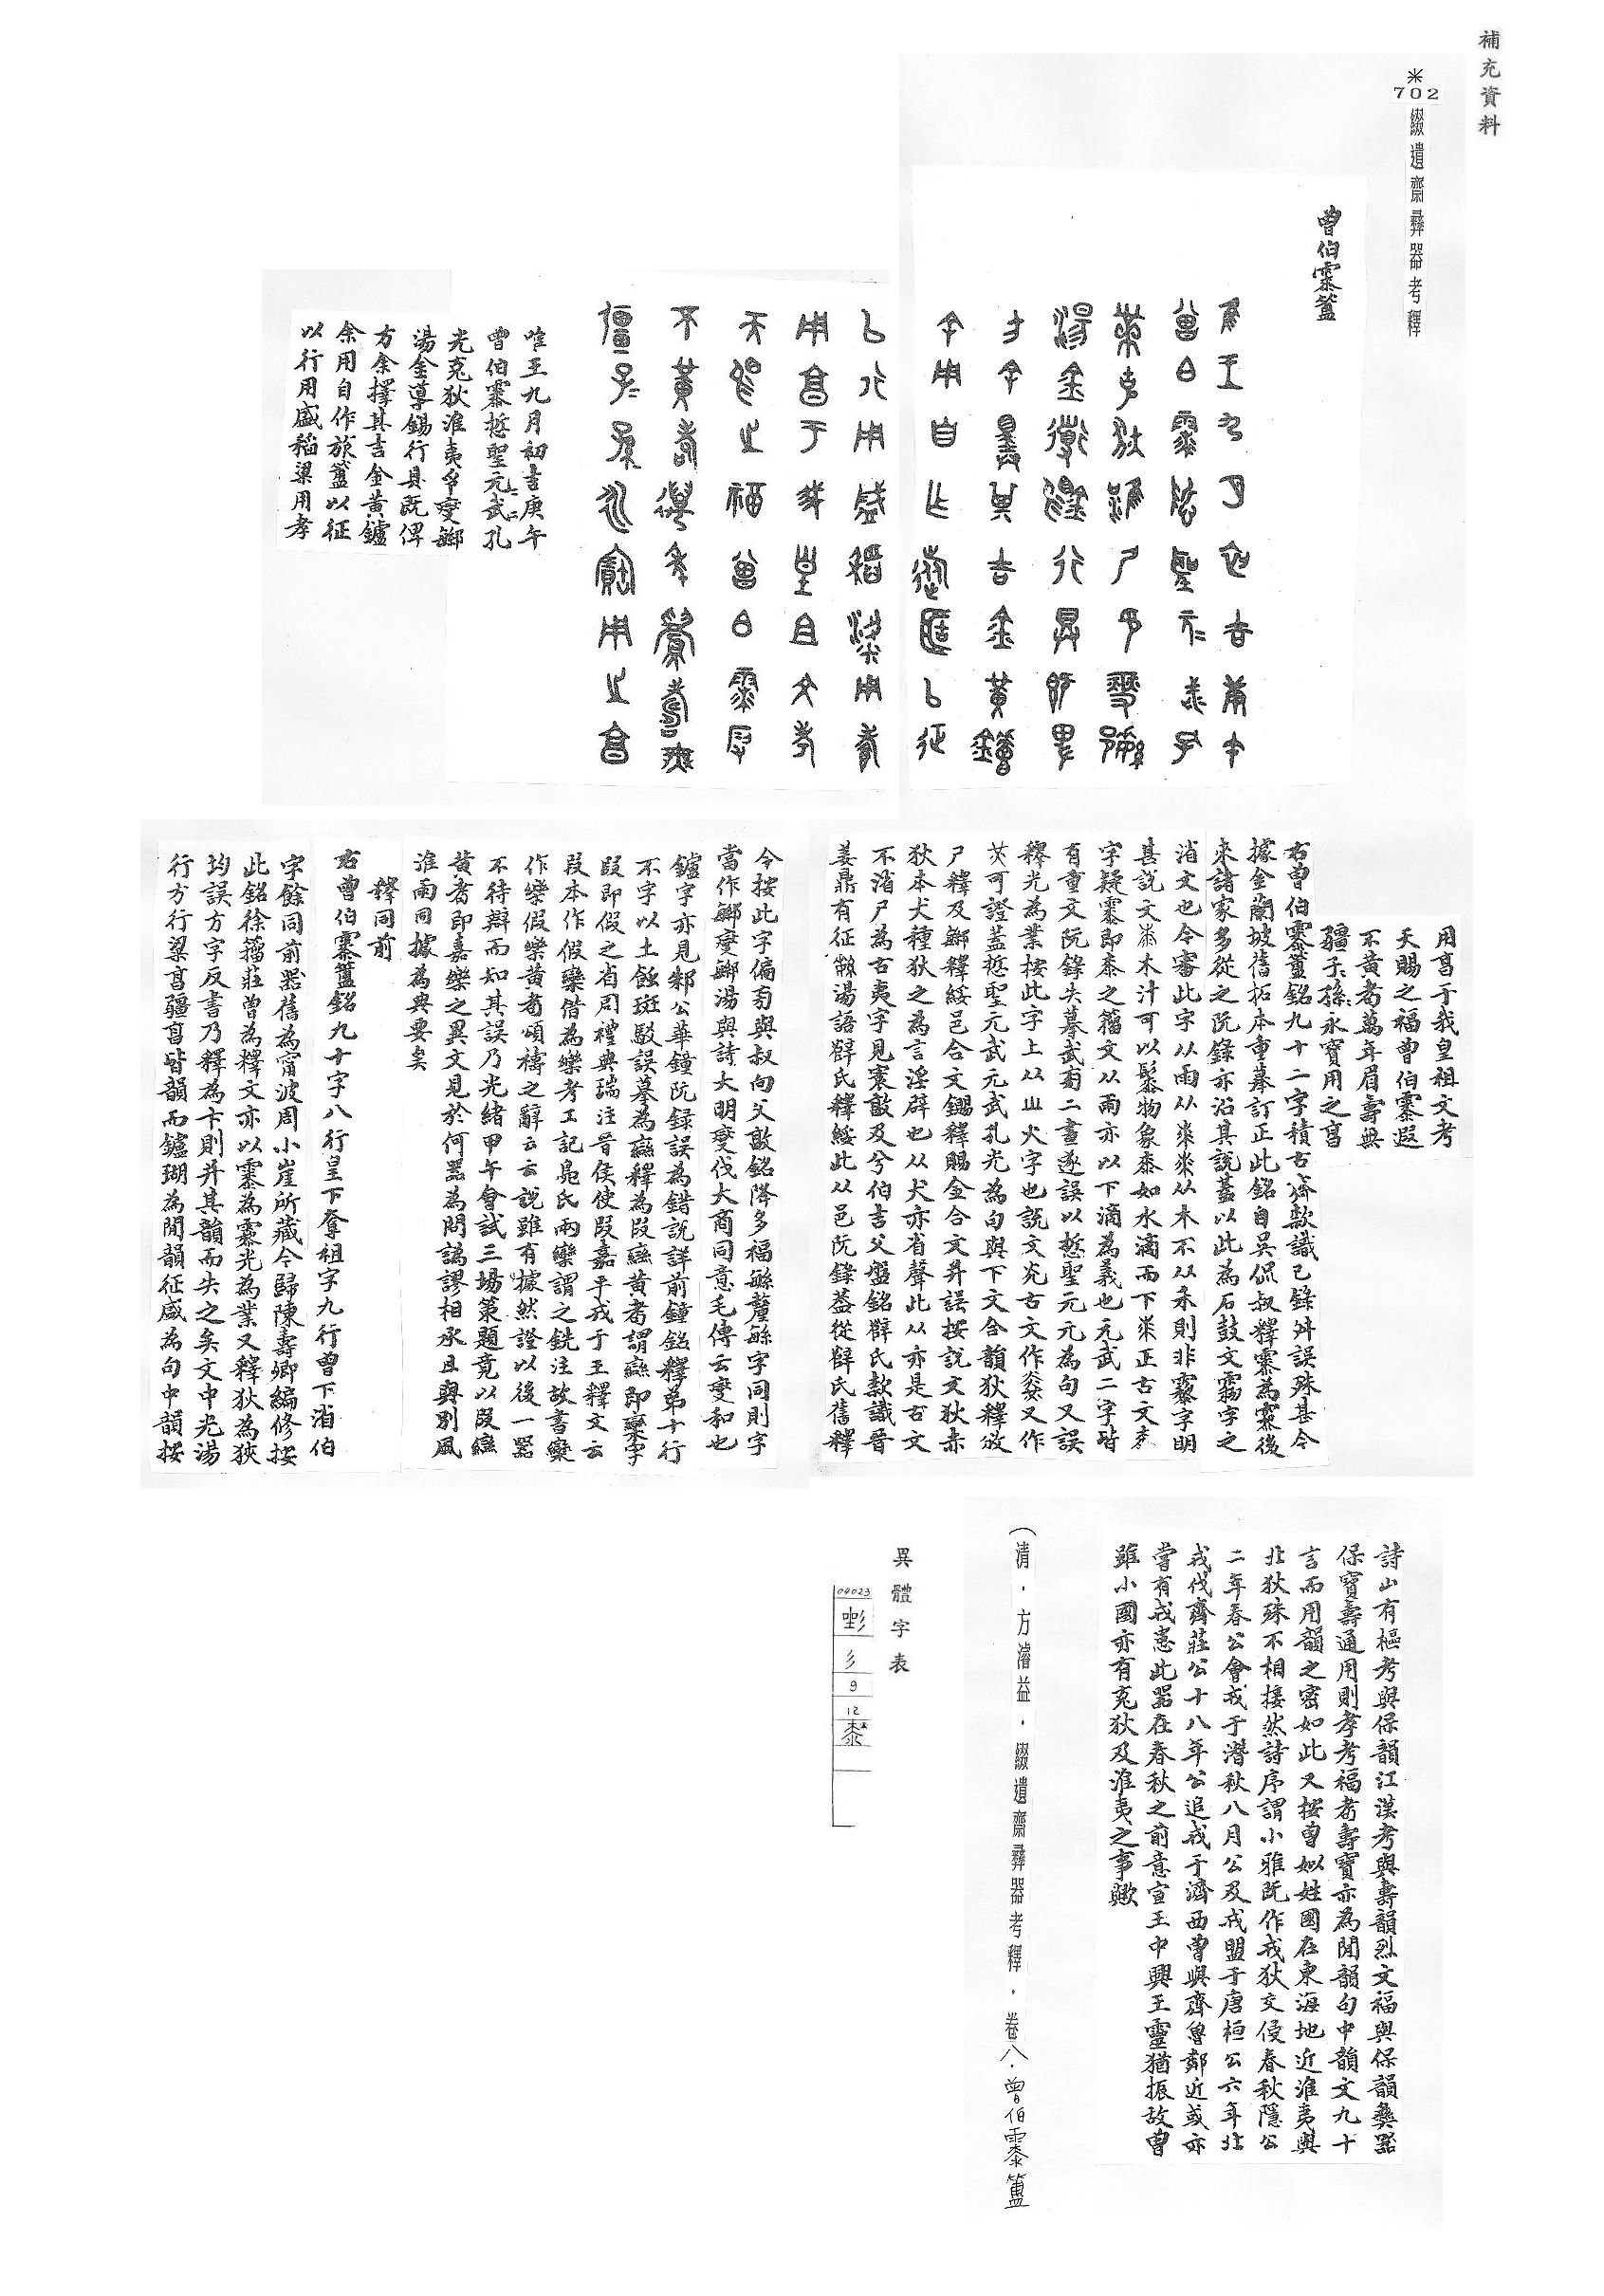 補充資料
*702
綴遺齋彝器考釋
曾伯霥簠
隹王九月初吉庚午
曾白霥悊聖元=武=孔
黹克狄淮尸印燮鄦
湯金道鍚行具既卑
方余擇其吉金黃鑪
余用自乍旅匿以征
以行用盛稻粱用孝
用亯于我皇且文考
天賜之福曾白霥叚
不黃耇萬年眉壽無
疆子=孫=永寶用之亯
唯王九月初吉庚午
曾伯霥悊聖元=武=孔
光克狄淮夷印燮鄦
湯金導錫行具既俾
方余擇其吉金黃鑪
余用自作旅簠以征
以行用盛稻粱用孝
用亯于我皇祖文考
天賜之福曾伯霥遐
不黃耇萬年眉壽無
疆子=孫=永寶用之亯
右曾伯霥簠銘九十二字積古齋款識已錄舛誤殊甚今
據金蘭坡舊拓本重摹訂正此銘自吳侃叔釋霥為霥後
來諸家多從之阮錄亦沿其說蓋以此為石鼓文字之
渻文也今審此字从雨从从木不从禾則非字明
甚說文桼木汁可以髹物象桼如水滴而下正古文桼
字疑霥即桼之籀文从雨亦以下滴為義也元武二字皆
有重文阮錄失摹武旁二畫遂誤以悊聖元元為句又誤
釋光為業按此字上从火字也說文光古文作又作
炗可證蓋悊聖元武元武孔光為句與下文合韻狄釋攸
尸釋及鄦釋綏邑合文鍚釋賜金合文幷誤按說文狄赤
狄本犬種狄之為言淫辟也从犬亦省聲此从亦是古文
不渻尸為古夷字見寰敦及兮伯吉父盤銘薛氏款識晉
姜鼎有征湯語薛氏釋綏此从邑阮錄蓋從薛氏舊釋
今按此字偏旁與叔向父敦銘降多福緐釐緐字同則字
當作鄦燮鄦湯與詩大明燮伐大商同意毛傳云燮和也
鑪字亦見邾公華鐘阮錄誤為錯說詳前鐘銘釋弟十行
不字以土蝕斑駁誤摹為釋為叚黃耇謂即欒字
叚即假之省周禮典瑞注晉侯使叚嘉平戎于王釋文云
叚本作假欒借為樂考工記鳧氏兩欒謂之銑注故書欒
作樂假樂黃耇頌禱之辭云云說雖有據然證以後一器
不待辯而知其誤乃光緒甲午會試三場策題竟以叚
黃耇即嘉樂之異文見於何器為問譌謬相承且與別風
淮雨同據為典要矣
釋同前
右曾伯霥簠銘九十字八行皇下奪祖字九行曾下渻伯
字餘同前器舊為甯波周小崖所藏今歸陳壽卿編修按
此銘徐籀莊曾為釋文亦以霥為霥光為業又釋狄為狹
均誤方字反書乃釋為卞則幷其韻而失之矣文中光湯
行方行粱亯疆亯皆韻而鑪瑚為閒韻征盛為句中韻按
詩山有樞考與保韻江漢考與壽韻烈文福與保韻彝器
保寶壽通用則孝考福耇壽寶亦為閒韻句中韻文九十
言而用韻之密如此又按曾姒姓國在東海地近淮夷與
北狄殊不相接然詩序謂小雅既作戎狄交侵春秋隱公
二年春公會戎于潛秋八月公及戎盟于唐桓公六年北
戎伐齊莊公十八年公追戎于濟西曾與齊魯鄰近或亦
嘗有戎患此器在春秋之前意宣王中興王靈猶振故曾
雖小國亦有克狄及淮夷之事歟
(清．方濬益．綴遺齋彝器考釋．卷八．曾伯霥簠
異體字表
04023
彡
9
12